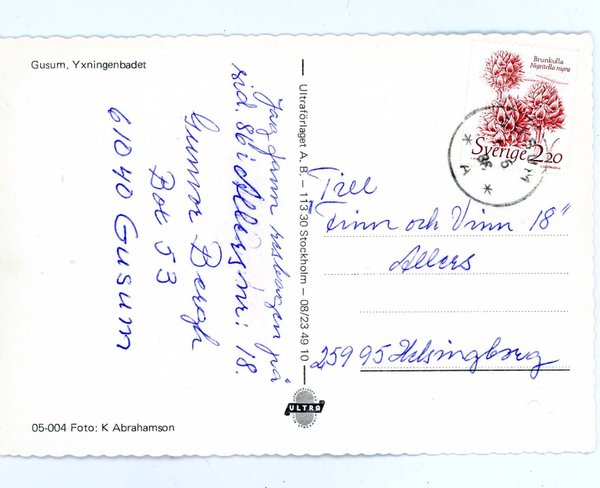 Gusum. Yxningenbadet
Jag fann resbagen på
sid. 86 i Allers nr: 18.
Gunnar Bergh
Box 53
61040 Gusum
Ultraförlaget A. B. – 113 30 Stockholm – 08/23 49 10
ULTRA
Brunkulla
Nigritella nigra
Sverige 2.20
Till
"Finn och Vinn 18"
Allers
25995 Helsingborg
05-004 Foto: K Abrahamson